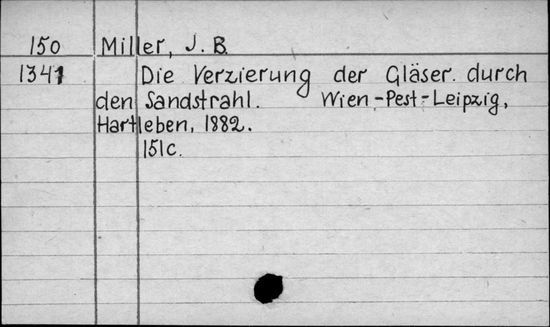 150 Miller, J. B.
1341 Die Verzierung der Gläser durch
den Sandstrahl. Wien-Pest-Leipzig,
Hartleben, 1882.
151c.